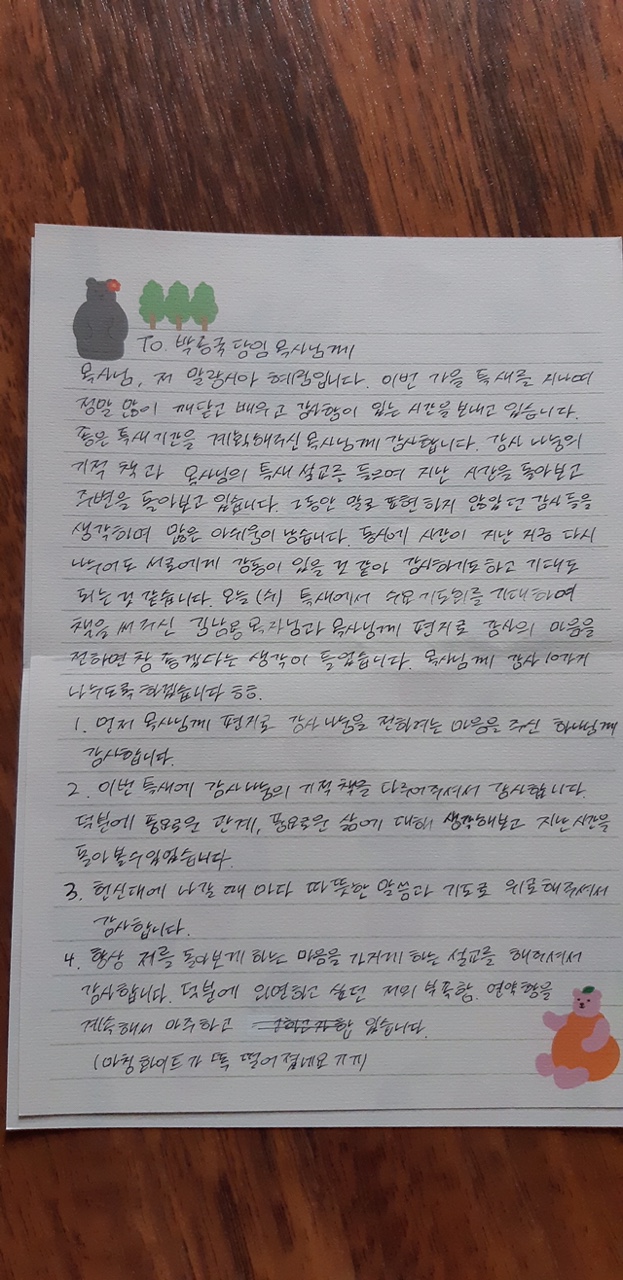 To. 박동국 담임 목사님께
목사님, 저 말랑시아 혜림입니다. 이번 가을 특새를 지나며
정말 많이 깨닫고 배우고 감사함이 있는 시간을 보내고 있습니다.
좋은 특새기간을 계획해주신 목사님께 감사합니다. 감사 나눔의
기적 책과 목사님의 특새 설교를 들으며 지난 시간을 돌아보고
주변을 돌아보고 있습니다. 그동안 말로 표현하지 않았던 감사들을
생각하며 많은 아쉬움이 남습니다. 동시에 시간이 지난 지금 다시
나누어도 서로에게 감동이 있을 것 같아 감사하기도 하고 기대도
되는 것 같습니다. 오늘 (수) 특새에서 수요기도회를 기대하며
책을 써 주신 김남용 목사님과 목사님께 편지로 감사의 마음을
전하면 참 좋겠다는 생각이 들었습니다. 목사님께 감사 10가지
나누도록 하겠습니다 ㅎㅎ.
1. 먼저 목사님께 편지로 감사나눔을 전하려는 마음을 주신 하나님께
감사합니다.
2. 이번 특새에 감사나눔의 기적 책을 다루어주셔서 감사합니다.
덕분에 풍요로운 관계, 풍요로운 삶에 대해 생각해보고 지난 시간을
돌아 볼 수 있었습니다.
3. 헌신대에 나갈 때 마다 따뜻한 말씀과 기도로 위로해주셔서
감사합니다.
4. 항상 저를 돌아보게 하는 마음을 가지게 하는 설교를 해주셔서
감사합니다. 덕분에 외면하고 싶던 저의 부족함, 연약함을
계속해서 마주하고 있습니다.
(마침 화이트가 똑 떨어졌네요 ㅠㅠ)